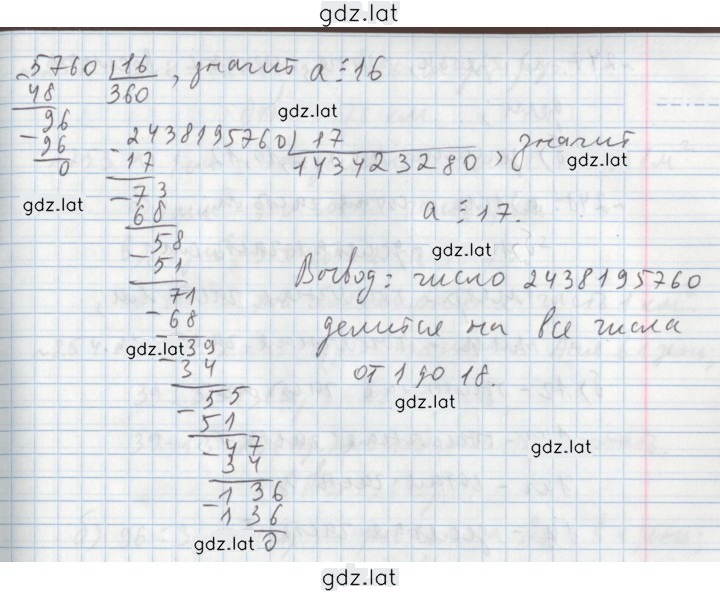 gdz.lat
5760 | 16 , значит a ⋮ 16
48 360
96
gdz.lat
- 96
0
- 2438195760 | 17 , значит
17 1434232 80
gdz.lat
- 73
a ⋮ 17.
gdz.lat
68
- 58
gdz.lat
- 51
Вывод: число 2438195760
71
- 68
делится на все числа
gdz.lat
- 39
34
от 1 до 18.
- 55
gdz.lat
51
- 47
gdz.lat
34
- 136
- 136
gdz.lat
0
gdz.lat